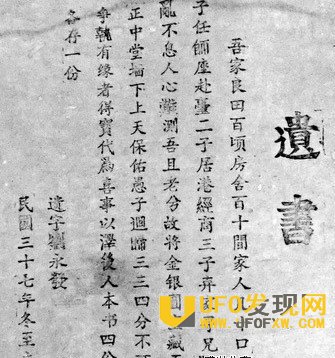 遺書
吾家良田百頃房舍百十間家人口
子任師座赴臺二子居港經商三子弃兄
亂不息人心難測吾且老兮故將金銀圓藏
正中堂墻下上天保佑愚子迴歸三三四分不
爭執有緣者得寶代為喜事以澤後人本书四份
各存一份
遺字劉永發
民國三十七年冬至
UFO发现网
UFOFXW.COM